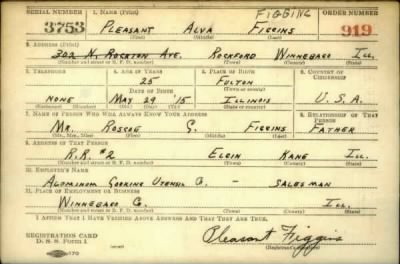 SERIAL NUMBER 1. NAME (Print) FIGGINS ORDER NUMBER
3753 PLEASANT ALVA FIGGINS 919
2. ADDRESS (Print)
302 N. ROCKTON AVE. ROCKFORD WINNEBAGO ILL.
3. TELEPHONE 4. AGE IN YEARS 5. PLACE OF BIRTH 6. COUNTRY OF CITIZENSHIP
25 FULTON
DATE OF BIRTH
NONE MAY 29 '15 ILLINOIS U.S.A.
7. NAME OF PERSON WHO WILL ALWAYS KNOW YOUR ADDRESS 8. RELATIONSHIP OF THAT PERSON
MR. ROSCOE G. FIGGINS FATHER
(Mr., Mrs., Miss) (First) (Middle) (Last)
9. ADDRESS OF THAT PERSON
R.R. #2 ELGIN KANE ILL.
(Number and street or R. F. D. number) (Town) (County) (State)
10. EMPLOYER'S NAME
ALUMINUM COOKING UTENSIL C. - SALESMAN
11. PLACE OF EMPLOYMENT OR BUSINESS
WINNEBAGO C. ILL.
(Number and street or R. F. D. number) (Town) (County) (State)
I AFFIRM THAT I HAVE VERIFIED ABOVE ANSWERS AND THAT THEY ARE TRUE.
REGISTRATION CARD Pleasant Figgins
D. S. S. Form 1 (Registrant's signature)